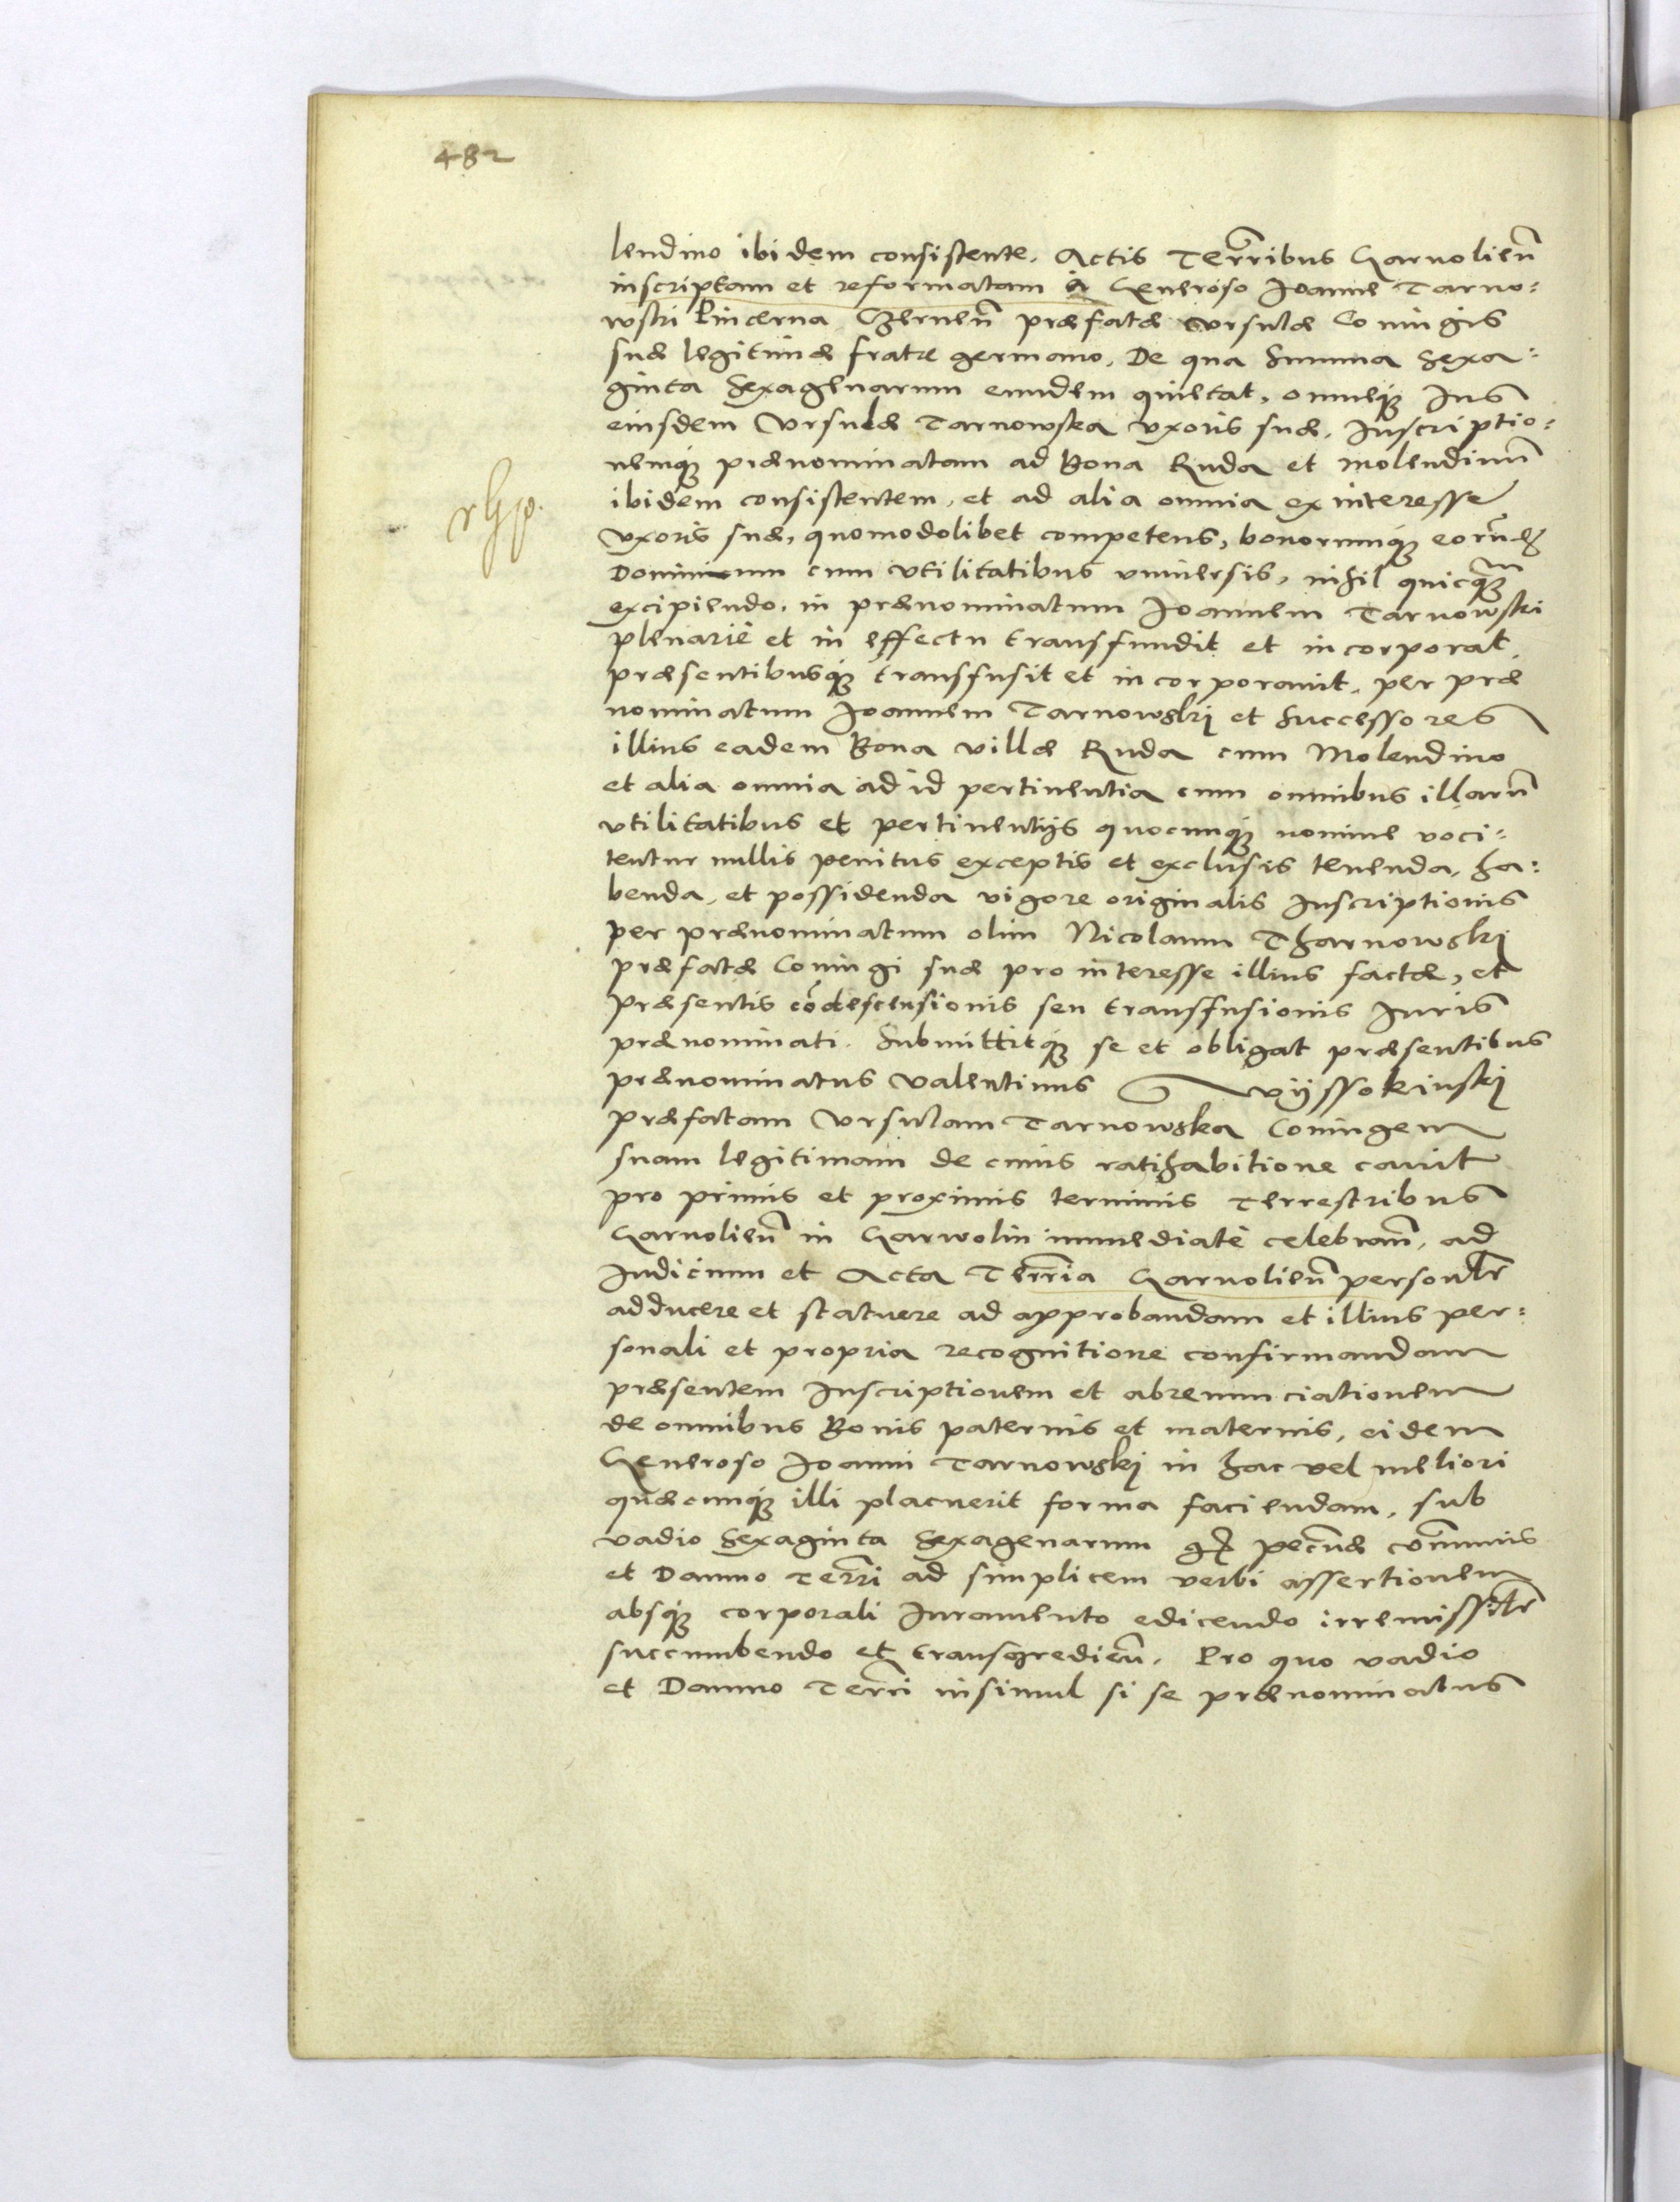 482
lendino ibidem consistente. Actis Terr͞ribus Garuolien̄
inscriptam et reformatam à Generoso Joanne Tarno=
wski Pincerna Czernen̄ præfatæ Vrsulæ Coniugis
suæ legitimæ fratre germano. De qua Summa Sexa=
ginta Sexagenarum eundem quietat, omneq́ꝫ Ius
eiusdem Vrsulæ Tarnowska vxoris suæ. Inscriptio=
nemq́ꝫ prænominatam ad Bona Ruda et molendinū
ibidem consistentem, et ad alia omnia ex interesse
vxoris suæ, quomodolibet competens, bonorumq́ꝫ eorūdē
Dominium cum vtilitatibus vniuersis, nihil quicq̄ꝫ
excipiendo, in prænominatum Joannem Tarnowski
plenarie et in effectu transfundit et incorporat,
præsentibusq́ꝫ transfusit et incorporauit, per præ
nominatum Joannem Tarnowskj et Successores
illius eadem Bona villæ Ruda cum Molendino
et alia omnia ad id pertinentia cum omnibus illarū
vtilitatibus et pertinentijs quocunq́ꝫ nomine voci=
tentur nullis penitus exceptis et exclusis tenenda, ha=
benda, et possidenda vigore originalis Inscriptionis
per prænominatum olim Nicolaum Tharnowskj
præfatæ Coniugi suæ pro interesse illius factæ, et
præsentis cōdescensionis seu transfusionis Iuris
prænominati. Submittitq́ꝫ se et obligat præsentibus
prænominatus Valentinus Wyssokinskj
præfatam Vrsulam Tarnowska Coniugem
suam legitimam de cuius ratihabitione cauit
pro primis et proximis terminis Terrestribus
Garuolien̄ in Garwolin immediatè celebran̄, ad
Iudicium et Acta Terr̄ria Garuolien̄ personlr̄
adducere et statuere ad approbandam et illius per=
sonali et propria recognitione confirmandam
præsentem Inscriptionem et abrenunciationem
de omnibus Bonis paternis et maternis, eidem
Generoso Joanni Tarnowskj in hac vel meliori
quæcunq́ꝫ illi placuerit forma faciendam, sub
vadio Sexaginta Sexagenarum pecūiæ cōmunis
et Damno Terr̄ri ad simplicem verbi assertionem
absq́ꝫ corporali Iuramento edicendo irremissibilr̄
succumbendo et transgredien̄. Pro quo vadio
et Damno Terr̄ri insimul si se prænominatus